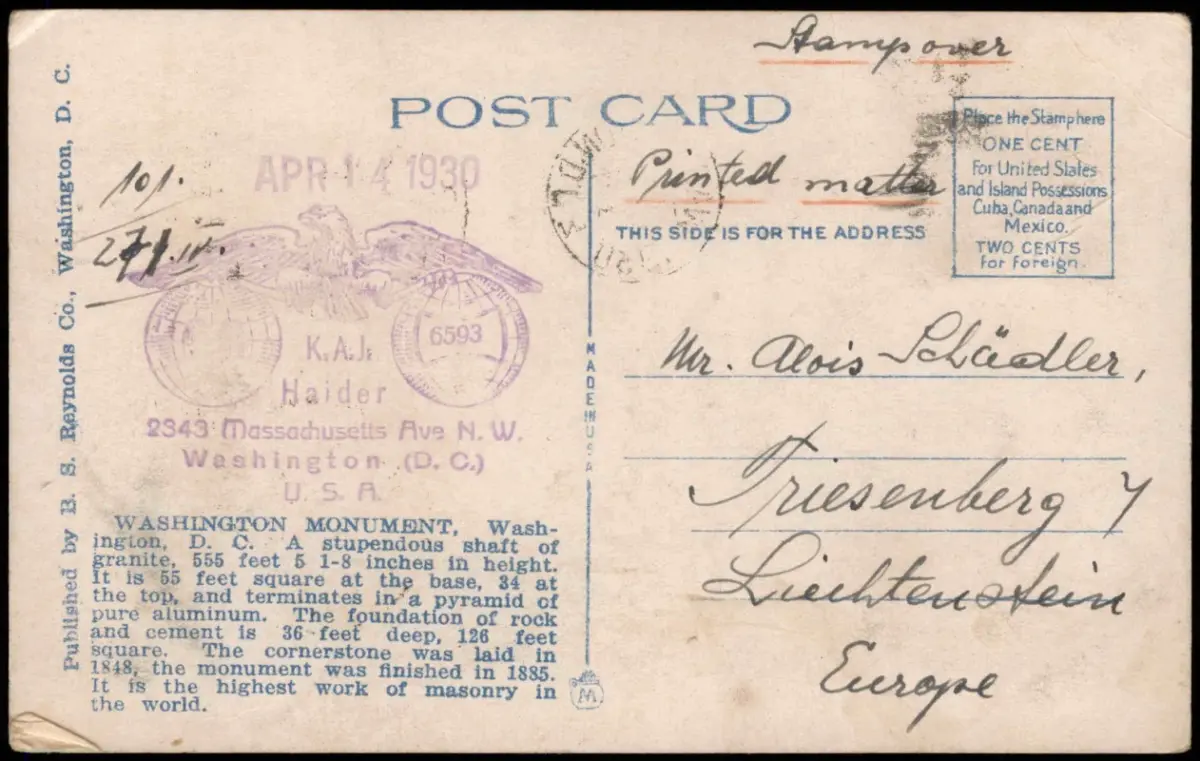 Stamp over
POST CARD
Place the Stamp here
ONE CENT
For United States
and Island Possessions
Cuba, Canada and
Mexico.
TWO CENTS
for foreign.
Printed matter
THIS SIDE IS FOR THE ADDRESS
APR 14 1930
101.
K.A.J.
6593
Haider
2343 Massachusetts Ave N.W.
Washington (D.C.)
U.S.A.
Mr. Alois Schädler,
Triesenberg 7
Liechtenstein
Europe
MADE IN USA
WASHINGTON MONUMENT, Wash-
ington, D. C. A stupendous shaft of
granite, 555 feet 5 1-8 inches in height.
It is 55 feet square at the base, 34 at
the top, and terminates in a pyramid of
pure aluminum. The foundation of rock
and cement is 36 feet deep, 126 feet
square. The cornerstone was laid in
1848, the monument was finished in 1885.
It is the highest work of masonry in
the world.
M
Published by B. S. Reynolds Co., Washington, D. C.